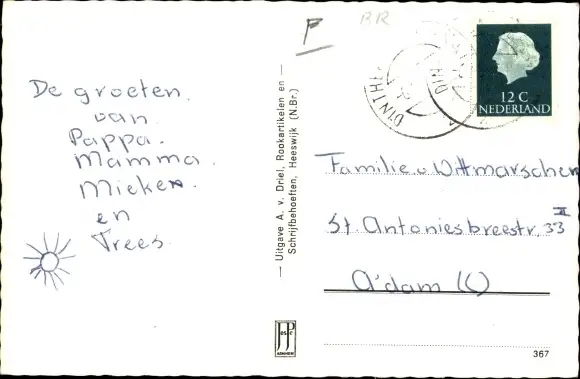 De groeten
van
Pappa.
Mamma.
Mieke
en
Trees.
Uitgave A. v. Driel, Rookartikelen en
Schrijfbehoeften, Heeswijk (N.Br.)
F
BR
DINTHE
DIN
12 C
NEDERLAND
Familie. v. Wittmarschen
St. Antoniesbreestr. 33 II
A'dam (C)
JosPé
ARNHEM
367